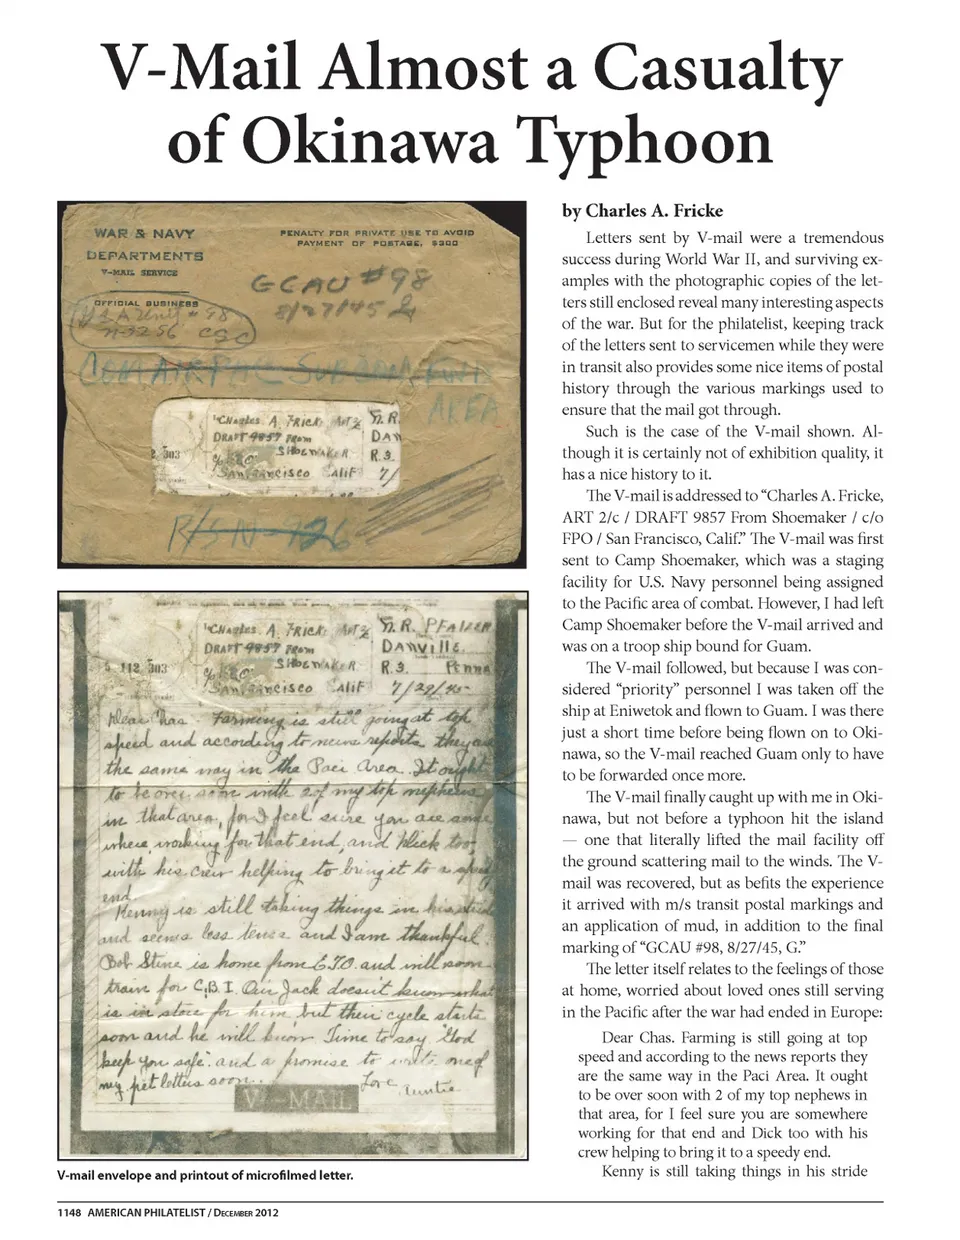 V-Mail Almost a Casualty
of Okinawa Typhoon
WAR & NAVY
DEPARTMENTS
V-MAIL SERVICE
OFFICIAL BUSINESS
PENALTY FOR PRIVATE USE TO AVOID
PAYMENT OF POSTAGE, $300
GCAU #98
8/27/45
N-3256 CGC
AREA
CHARLES A. FRICKE ART 2/c
DRAFT 9857 FROM
SHOEMAKER
c/o FPO
SAN FRANCISCO CALIF
N.R.
DAN
R.3.
7/
303
R/S N-926
CHARLES A. FRICKE ART 2/c
DRAFT 9857 FROM
SHOEMAKER
c/o FPO
SAN FRANCISCO CALIF
N.R. PFALZER
DANVILLE
R.3. PENNA
7/29/45
5 112 303
Dear Chas. Farming is still going at top
speed and according to news reports they are
the same way in the Paci Area. It ought
to be over soon with 2 of my top nephews
in that area, for I feel sure you are some
where working for that end, and Dick too,
with his crew helping to bring it to a speedy
end.
Kenny is still taking things in his stride
and seems less tense and I am thankful.
Bob Stine is home from E.T.O. and will soon
train for C.B.I. Our Jack doesn't know what
is in store for him, but their cycle starts
soon and he will know. Time to say "God
keep you safe" and a promise to write one of
my pet letters soon.
Love
Auntie
V - MAIL
V-mail envelope and printout of microfilmed letter.
by Charles A. Fricke
Letters sent by V-mail were a tremendous
success during World War II, and surviving ex-
amples with the photographic copies of the let-
ters still enclosed reveal many interesting aspects
of the war. But for the philatelist, keeping track
of the letters sent to servicemen while they were
in transit also provides some nice items of postal
history through the various markings used to
ensure that the mail got through.
Such is the case of the V-mail shown. Al-
though it is certainly not of exhibition quality, it
has a nice history to it.
The V-mail is addressed to “Charles A. Fricke,
ART 2/c / DRAFT 9857 From Shoemaker / c/o
FPO / San Francisco, Calif.” The V-mail was first
sent to Camp Shoemaker, which was a staging
facility for U.S. Navy personnel being assigned
to the Pacific area of combat. However, I had left
Camp Shoemaker before the V-mail arrived and
was on a troop ship bound for Guam.
The V-mail followed, but because I was con-
sidered “priority” personnel I was taken off the
ship at Eniwetok and flown to Guam. I was there
just a short time before being flown on to Oki-
nawa, so the V-mail reached Guam only to have
to be forwarded once more.
The V-mail finally caught up with me in Oki-
nawa, but not before a typhoon hit the island
— one that literally lifted the mail facility off
the ground scattering mail to the winds. The V-
mail was recovered, but as befits the experience
it arrived with m/s transit postal markings and
an application of mud, in addition to the final
marking of “GCAU #98, 8/27/45, G.”
The letter itself relates to the feelings of those
at home, worried about loved ones still serving
in the Pacific after the war had ended in Europe:
Dear Chas. Farming is still going at top
speed and according to the news reports they
are the same way in the Paci Area. It ought
to be over soon with 2 of my top nephews in
that area, for I feel sure you are somewhere
working for that end and Dick too with his
crew helping to bring it to a speedy end.
Kenny is still taking things in his stride
1148 AMERICAN PHILATELIST / DECEMBER 2012